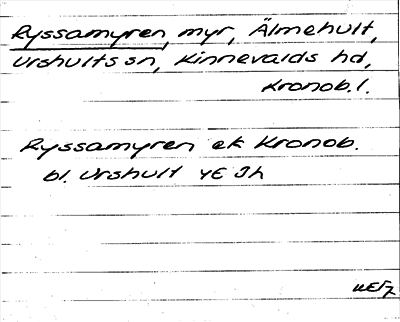 Ryssamyren, myr, Älmehult,
Urshults sn, Kinnevalds hd,
Kronob. l.
Ryssamyren ek Kronob.
bl. Urshult 4E 3h